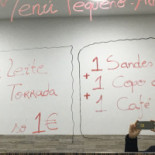 Menu Pequeno
Leite
Torrada
1€
+ 1 Sandes
+ 1 Copo
+ 1 Café